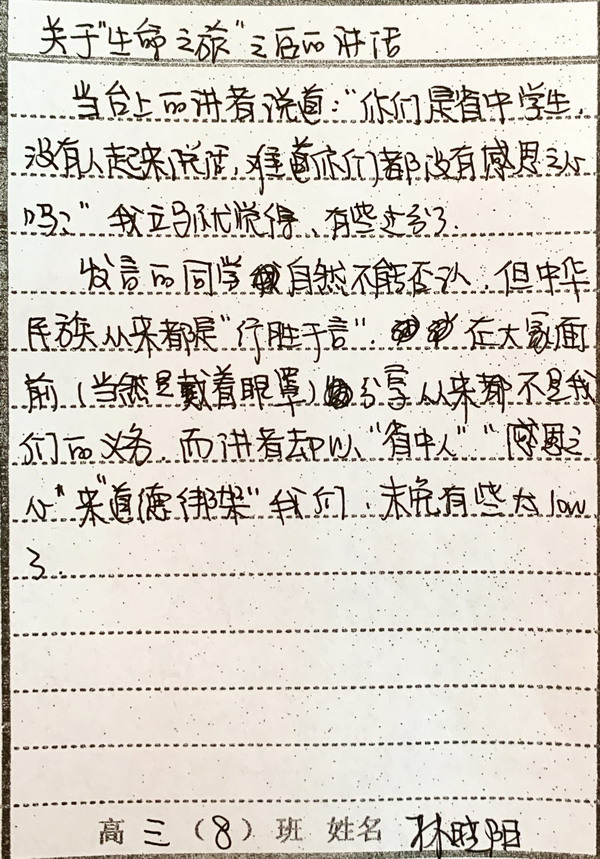 关于“生命之旅”之后的讲话
当台上的讲者说道：“你们是省中学生，
没有人起来说话，难道你们都没有感恩之心
吗？”我立马就觉得、有些过分了.
发言的同学自然不能否认，但中华
民族从来都是“行胜于言”. 在大家面
前（当然是戴着眼罩）分享从来都不是我
们的义务. 而讲者却以“省中人”“感恩之
心”来“道德绑架”我们，未免有些太low
了.
高 三 （8）班 姓名 林晓阳